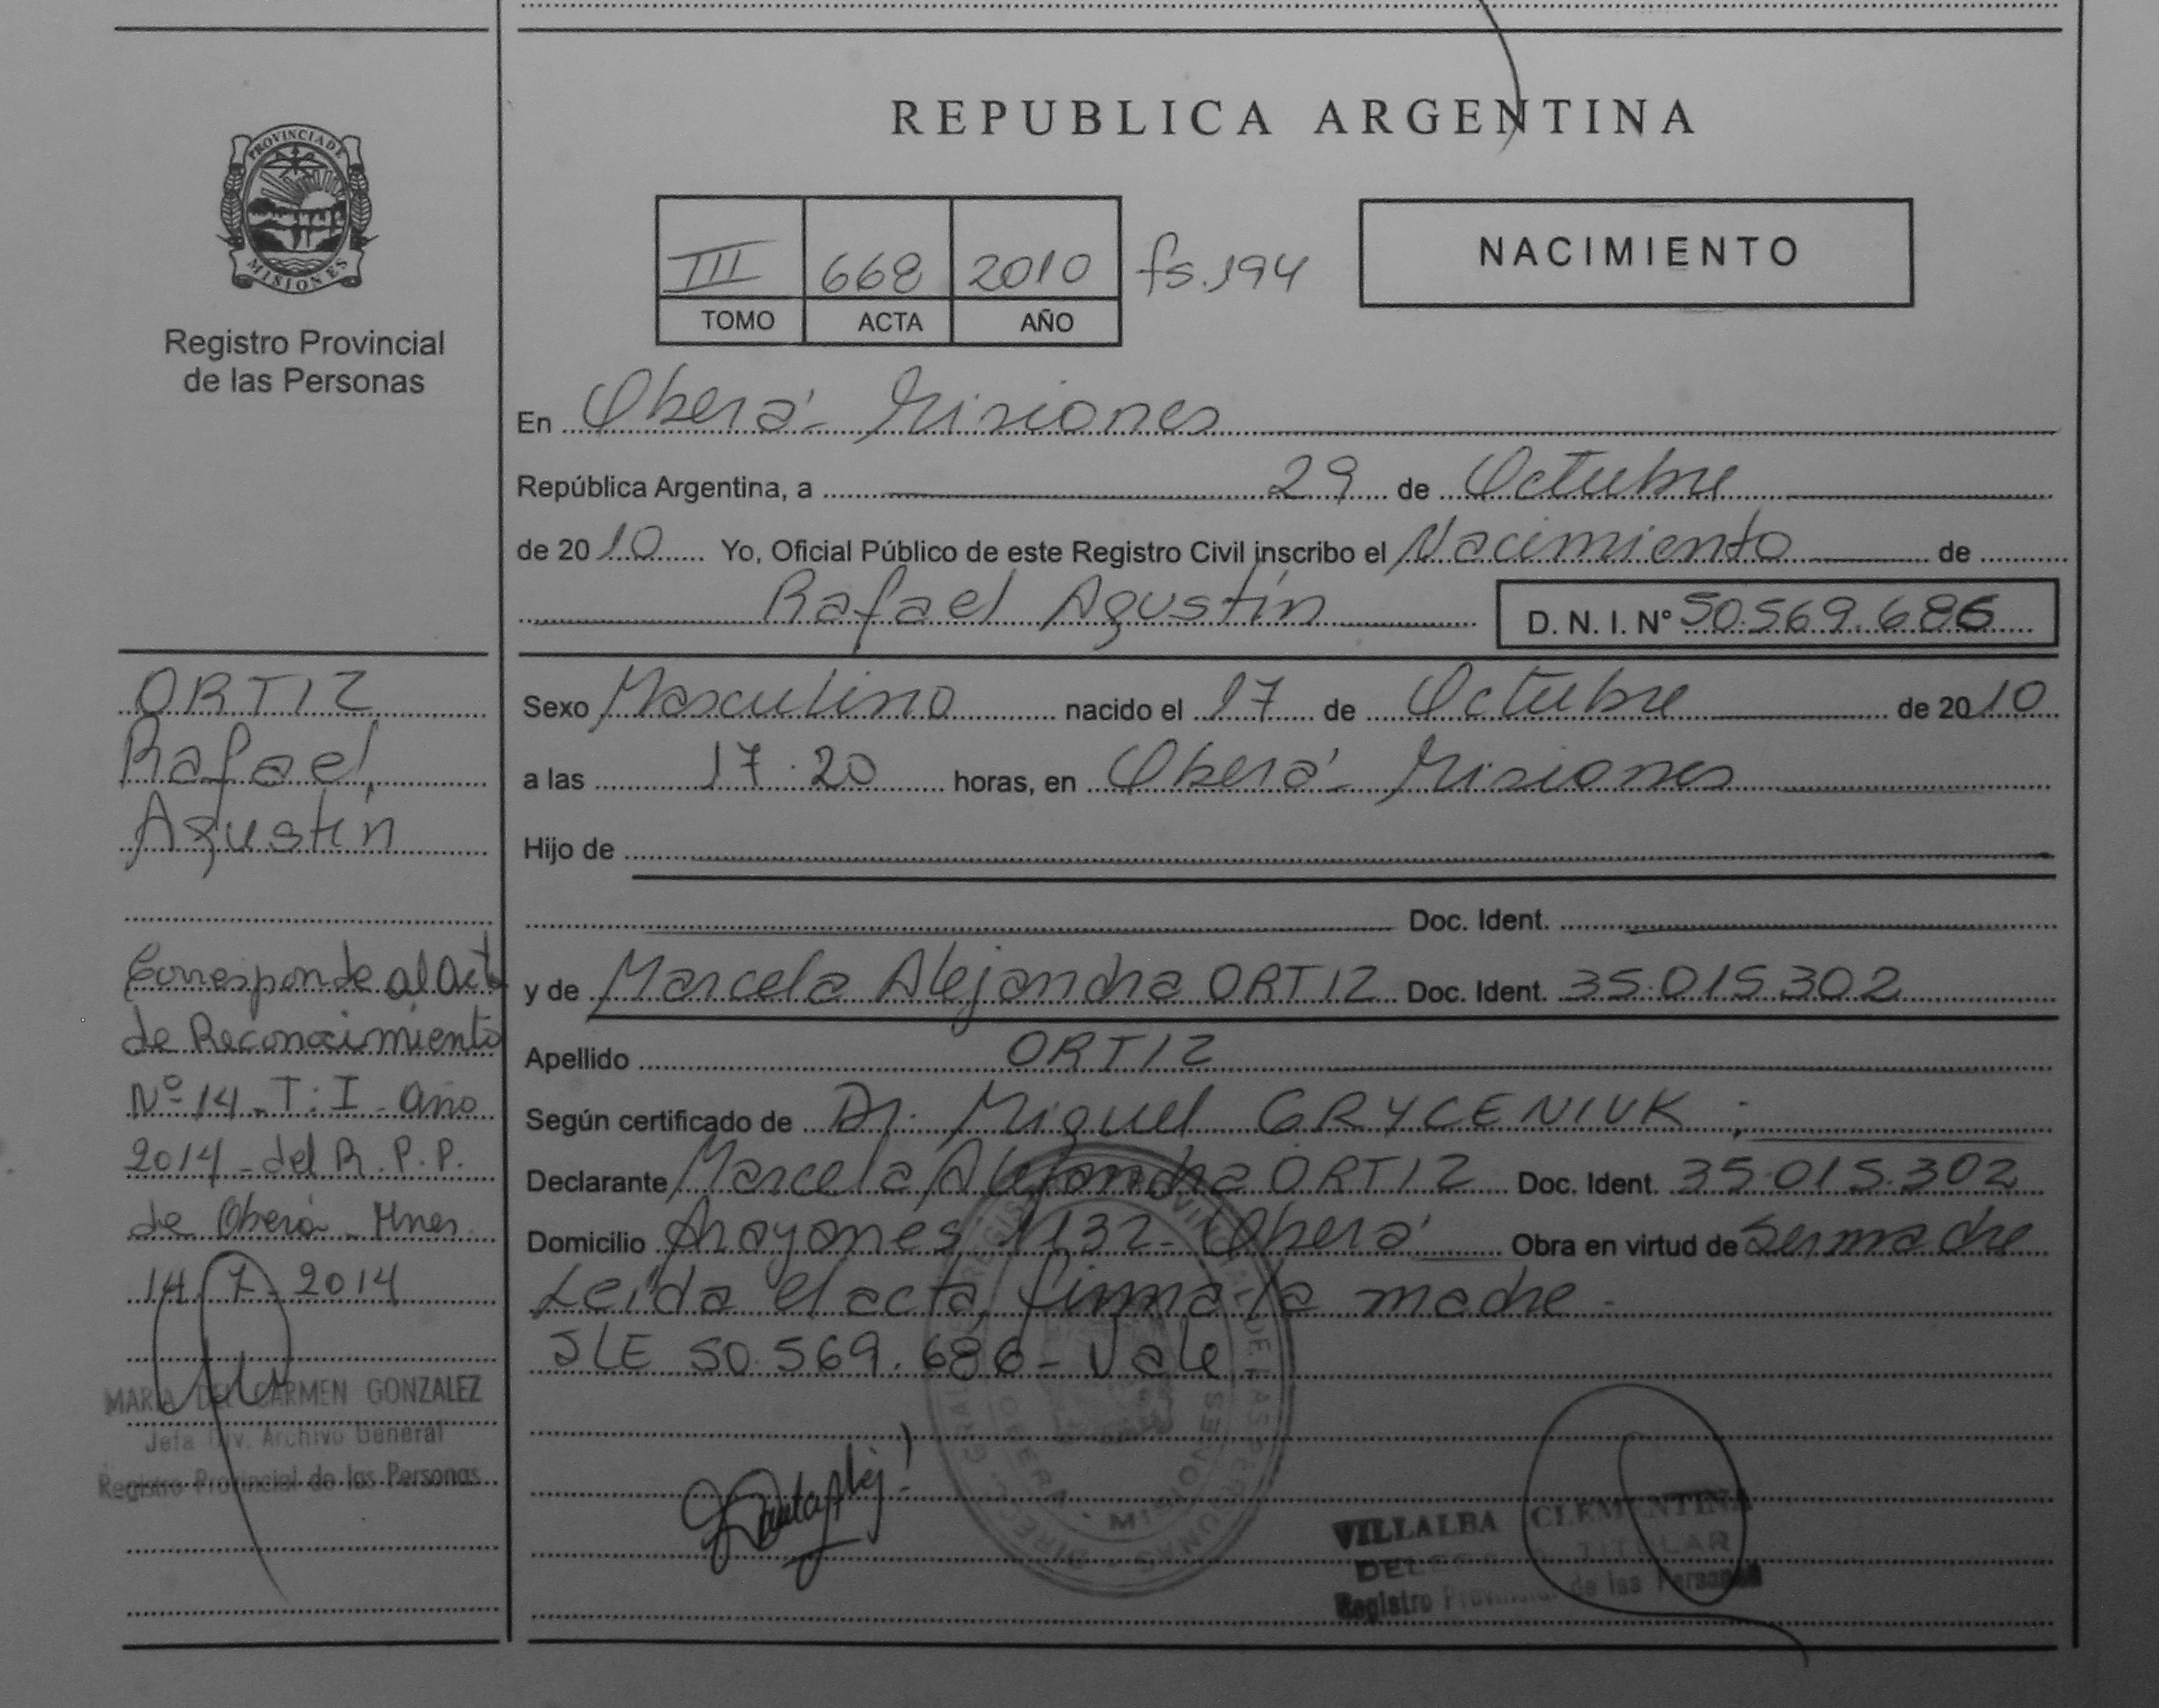 PROVINCIA DE
MISIONES
Registro Provincial
de las Personas
REPUBLICA ARGENTINA
III 668 2010 fs. 194
TOMO ACTA AÑO
NACIMIENTO
En Oberá - Misiones
República Argentina, a 29 de Octubre
de 2010 Yo, Oficial Público de este Registro Civil inscribo el Nacimiento de
Rafael Agustín D. N. I. Nº 50.569.686
Sexo Masculino nacido el 17 de Octubre de 2010
a las 17.20 horas, en Oberá - Misiones
Hijo de
Doc. Ident.
y de Marcela Alejandra ORTIZ Doc. Ident. 35.015.302
Apellido ORTIZ
Según certificado de Dr. Miguel GRYCENIUK ;
Declarante Marcela Alejandra ORTIZ Doc. Ident. 35.015.302
Domicilio Arayanes 1132 - Oberá Obra en virtud de ser madre
Leída el acta, firma la madre -
SLE 50.569.686 - Vale
ORTIZ
Rafael
Agustín
Corresponde al Acta
de Reconocimiento
Nº 14 - T: I - Año
2014 - del R. P. P.
de Oberá - Mnes.
14 - 7 - 2014
MARIA DEL CARMEN GONZALEZ
Jefa Div. Archivo General
Registro Provincial de las Personas
OBERA - MISIONES
VILLALBA CLEMENTINA
DELEGADA TITULAR
Registro Provincial de las Personas